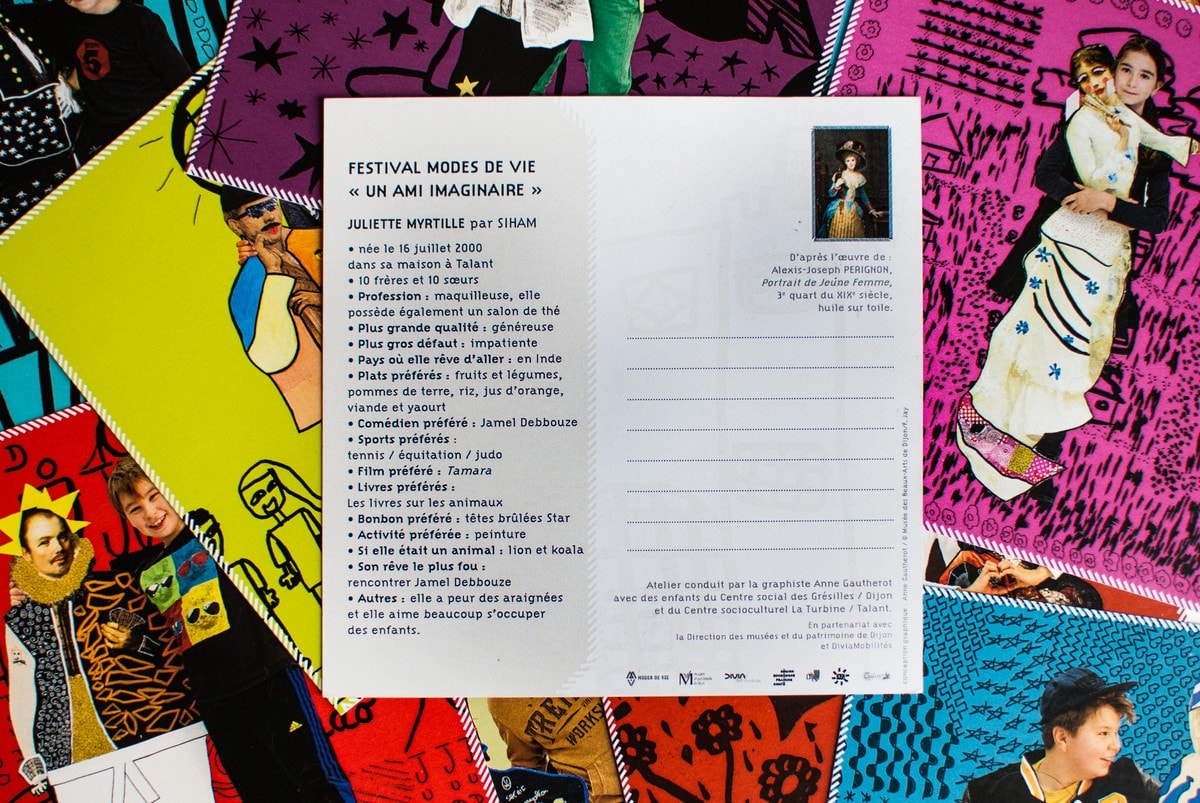 FESTIVAL MODES DE VIE
« UN AMI IMAGINAIRE »
JULIETTE MYRTILLE par SIHAM
• née le 16 juillet 2000
dans sa maison à Talant
• 10 frères et 10 sœurs
• Profession : maquilleuse, elle
possède également un salon de thé
• Plus grande qualité : généreuse
• Plus gros défaut : impatiente
• Pays où elle rêve d'aller : en Inde
• Plats préférés : fruits et légumes,
pommes de terre, riz, jus d'orange,
viande et yaourt
• Comédien préféré : Jamel Debbouze
• Sports préférés :
tennis / équitation / judo
• Film préféré : Tamara
• Livres préférés :
Les livres sur les animaux
• Bonbon préféré : têtes brûlées Star
• Activité préférée : peinture
• Si elle était un animal : lion et koala
• Son rêve le plus fou :
rencontrer Jamel Debbouze
• Autres : elle a peur des araignées
et elle aime beaucoup s'occuper
des enfants.
D'après l'œuvre de :
Alexis-Joseph PERIGNON,
Portrait de Jeune Femme,
3e quart du XIXe siècle,
huile sur toile.
Atelier conduit par la graphiste Anne Gautherot
avec des enfants du Centre social des Grésilles / Dijon
et du Centre socioculturel La Turbine / Talant.
En partenariat avec
la Direction des musées et du patrimoine de Dijon
et DiviaMobilités
MODES DE VIE
DIVIA
conception graphique Anne Gautherot / © Musée des Beaux-Arts de Dijon/F. Jay
5
WORKS